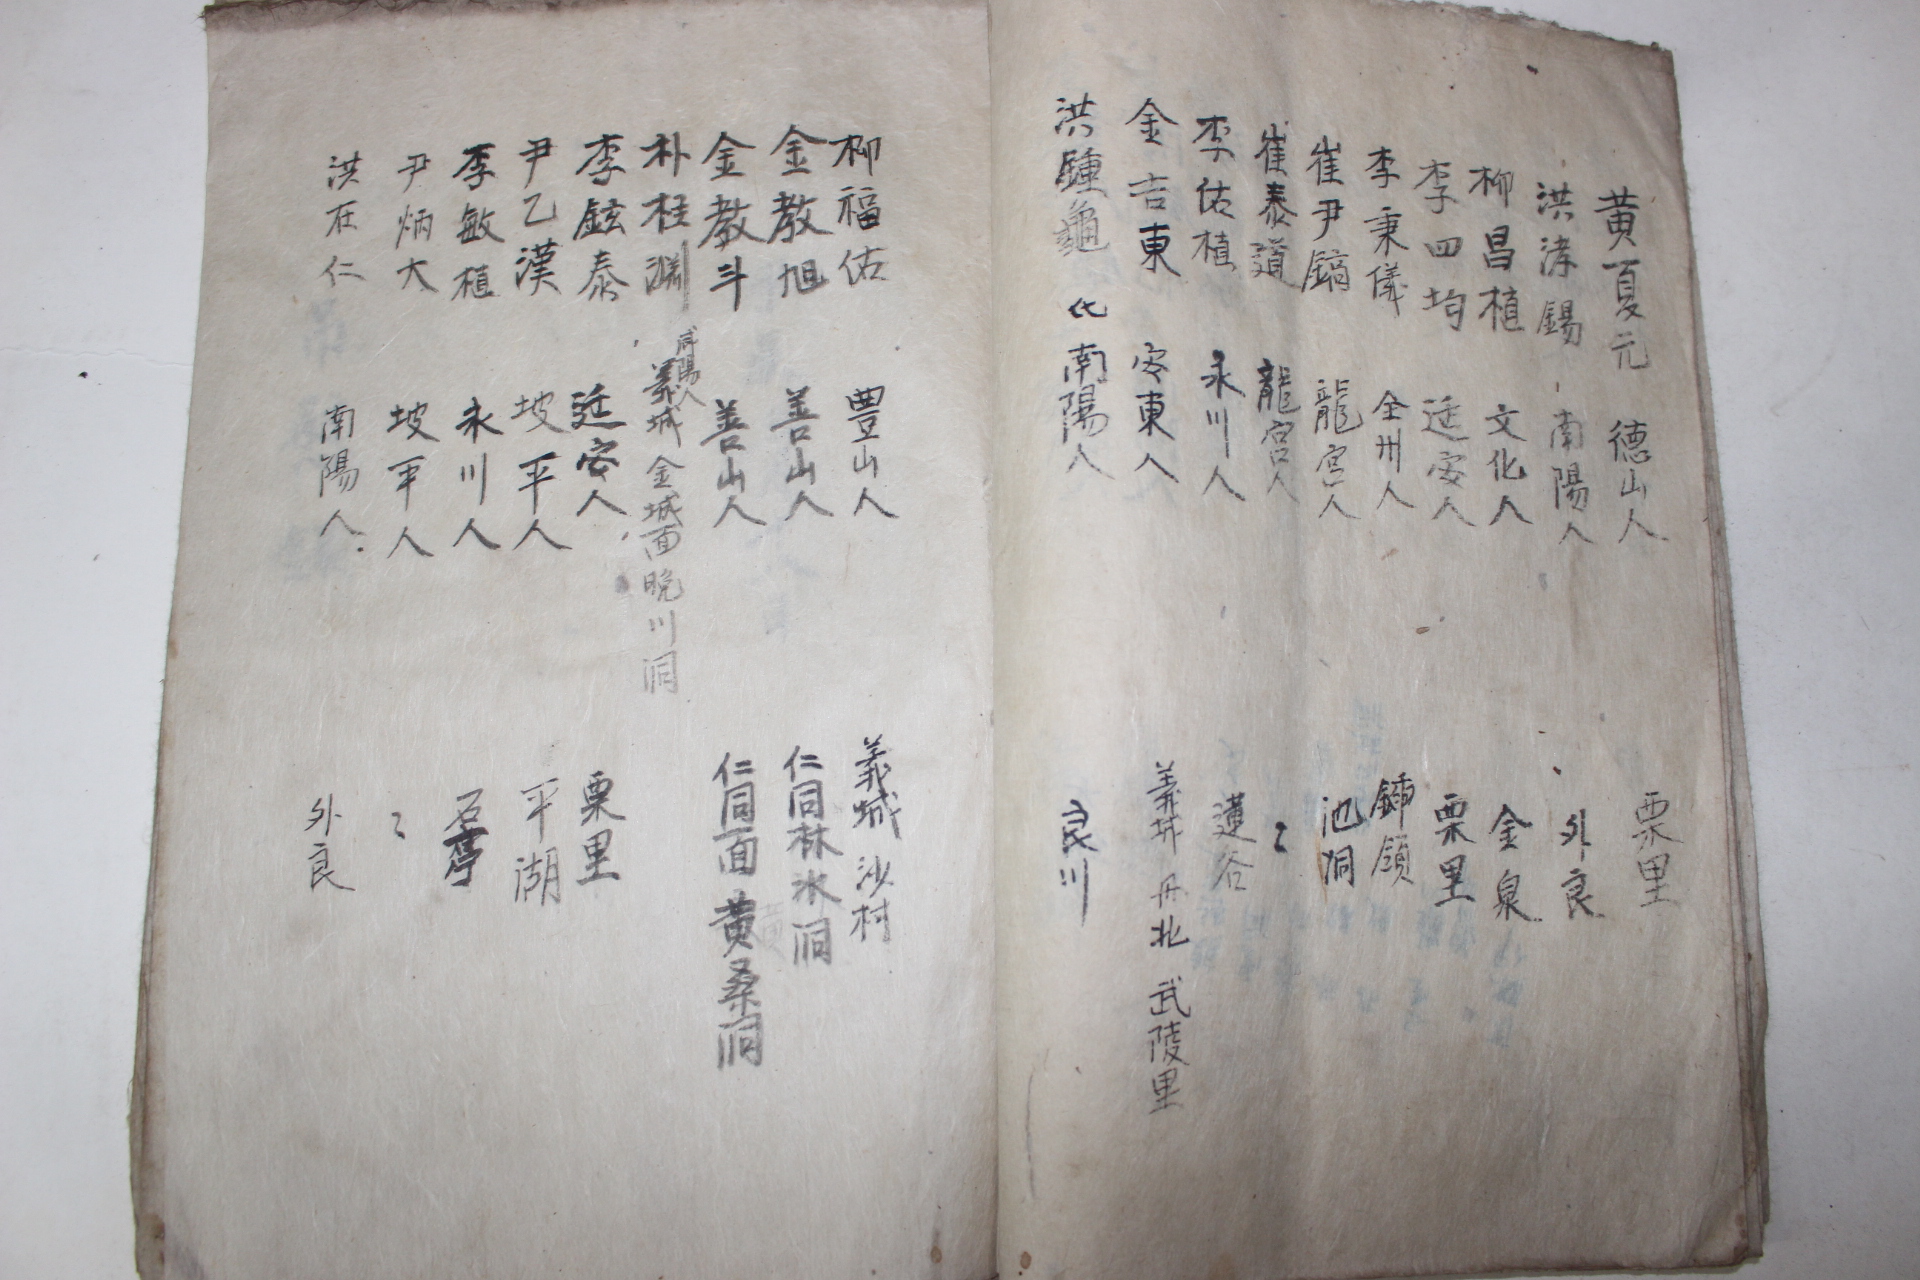 黄夏元 德山人 栗里
洪淎錫 南陽人 外良
柳昌植 文化人 金泉
李四均 延安人 栗里
李秉儀 全州人 鍾領
崔尹鎬 龍宮人 池洞
崔泰道 龍宮人 〻
李佑植 永川人 蓮谷
金吉東 安東人 義城 丹北 武陵里
洪鍾龜 代 南陽人 良川
柳福佑 豊山人 義城 沙村
金教旭 善山人 仁同林氷洞
金教斗 善山人 仁同面 黄桑洞
朴桂淵 咸陽人 義城 金城面晩川洞
李鉉泰 延安人 栗里
尹乙漢 坡平人 平湖
李敏植 永川人 石亭
尹炳大 坡平人 〻
洪在仁 南陽人 外良